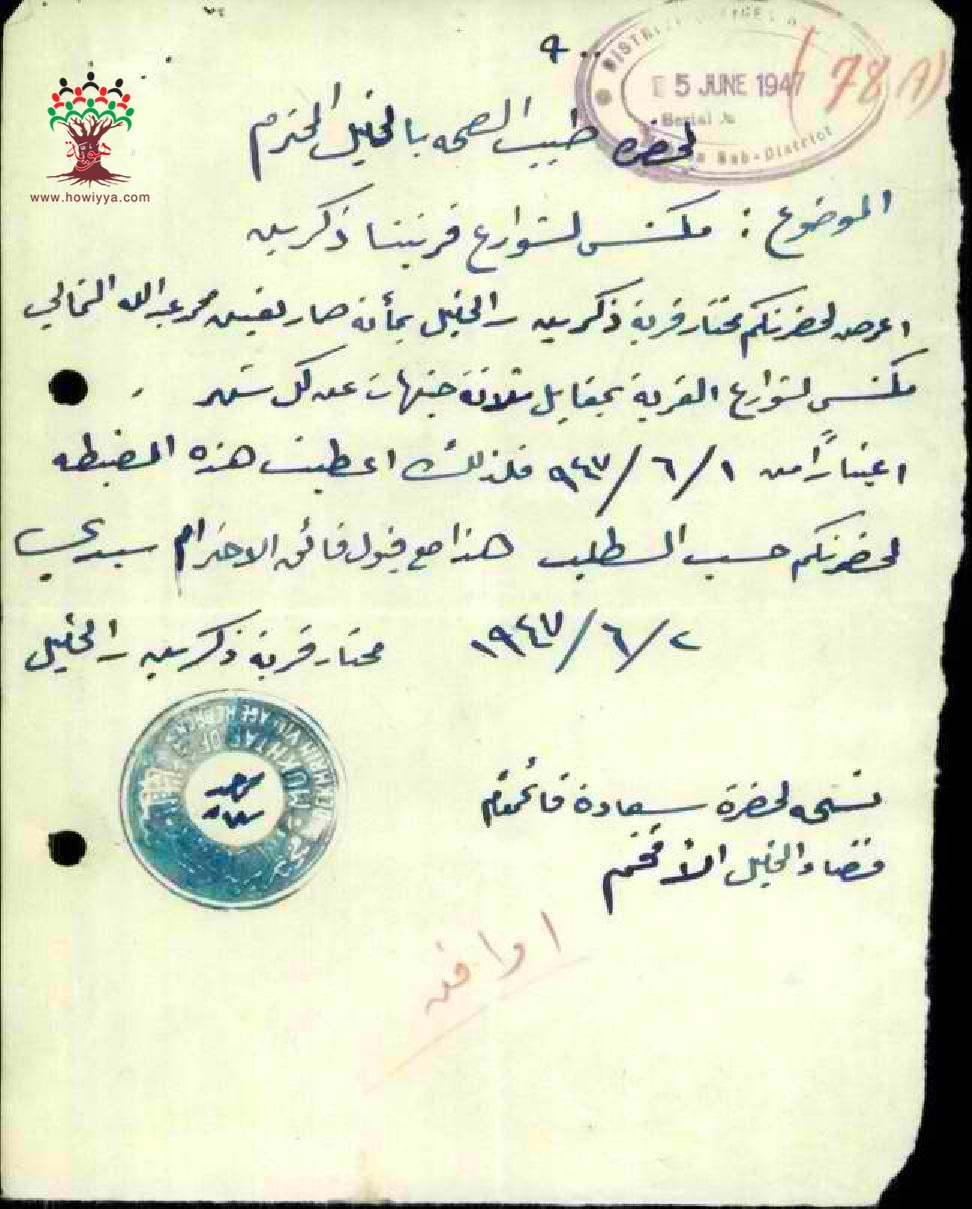 ٩٠٠
DISTRICT OFFICER
5 JUNE 1947
(78A)
Serial No
Sub-District
لحضرة طبيب الصحه بالخليل المحترم
هوية
www.howiyya.com
الموضوع : مكنس لشوارع قريتنا ذكرين
اعرض لحضرتكم مختار قرية ذكرين - الخليل بأنه صار تعيين محمد عبدالله
مكنس لشوارع القرية بمقابل ثلاثة جنيهات عن كل شهر
اعتباراً من ١/٦/٩٤٧ فلذلك اعطيت هذه المضبطه
لحضرتكم حسب الطلب هذا مع قبول فائق الاحترام سيدي
٢/٦/١٩٤٧ مختار قرية ذكرين - الخليل
MUKHTAR OF
VILLAGE HEBRON
نسخه لحضرة سعادة قائمقام
قضاء الخليل الأفخم
اوافق